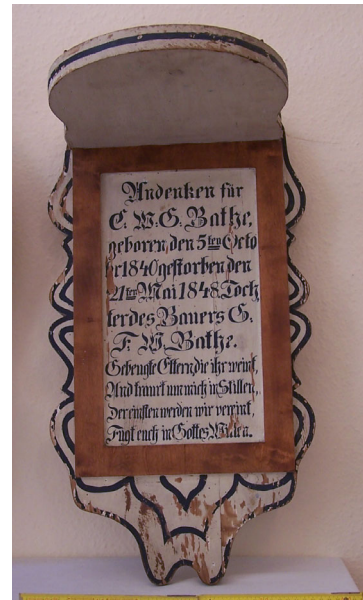 Andenken für
C. W. G. Bathe,
geboren, den 5ten Octo
ber 1840 gestorben den
21ten Mai 1848. Toch
ter des Bauers G.
F. W. Bathe.
Gebeugte Eltern, die ihr weint,
Und traurt um mich in Stillen,
Der einsten werden wir vereint,
Fügt euch in Gottes Willen.